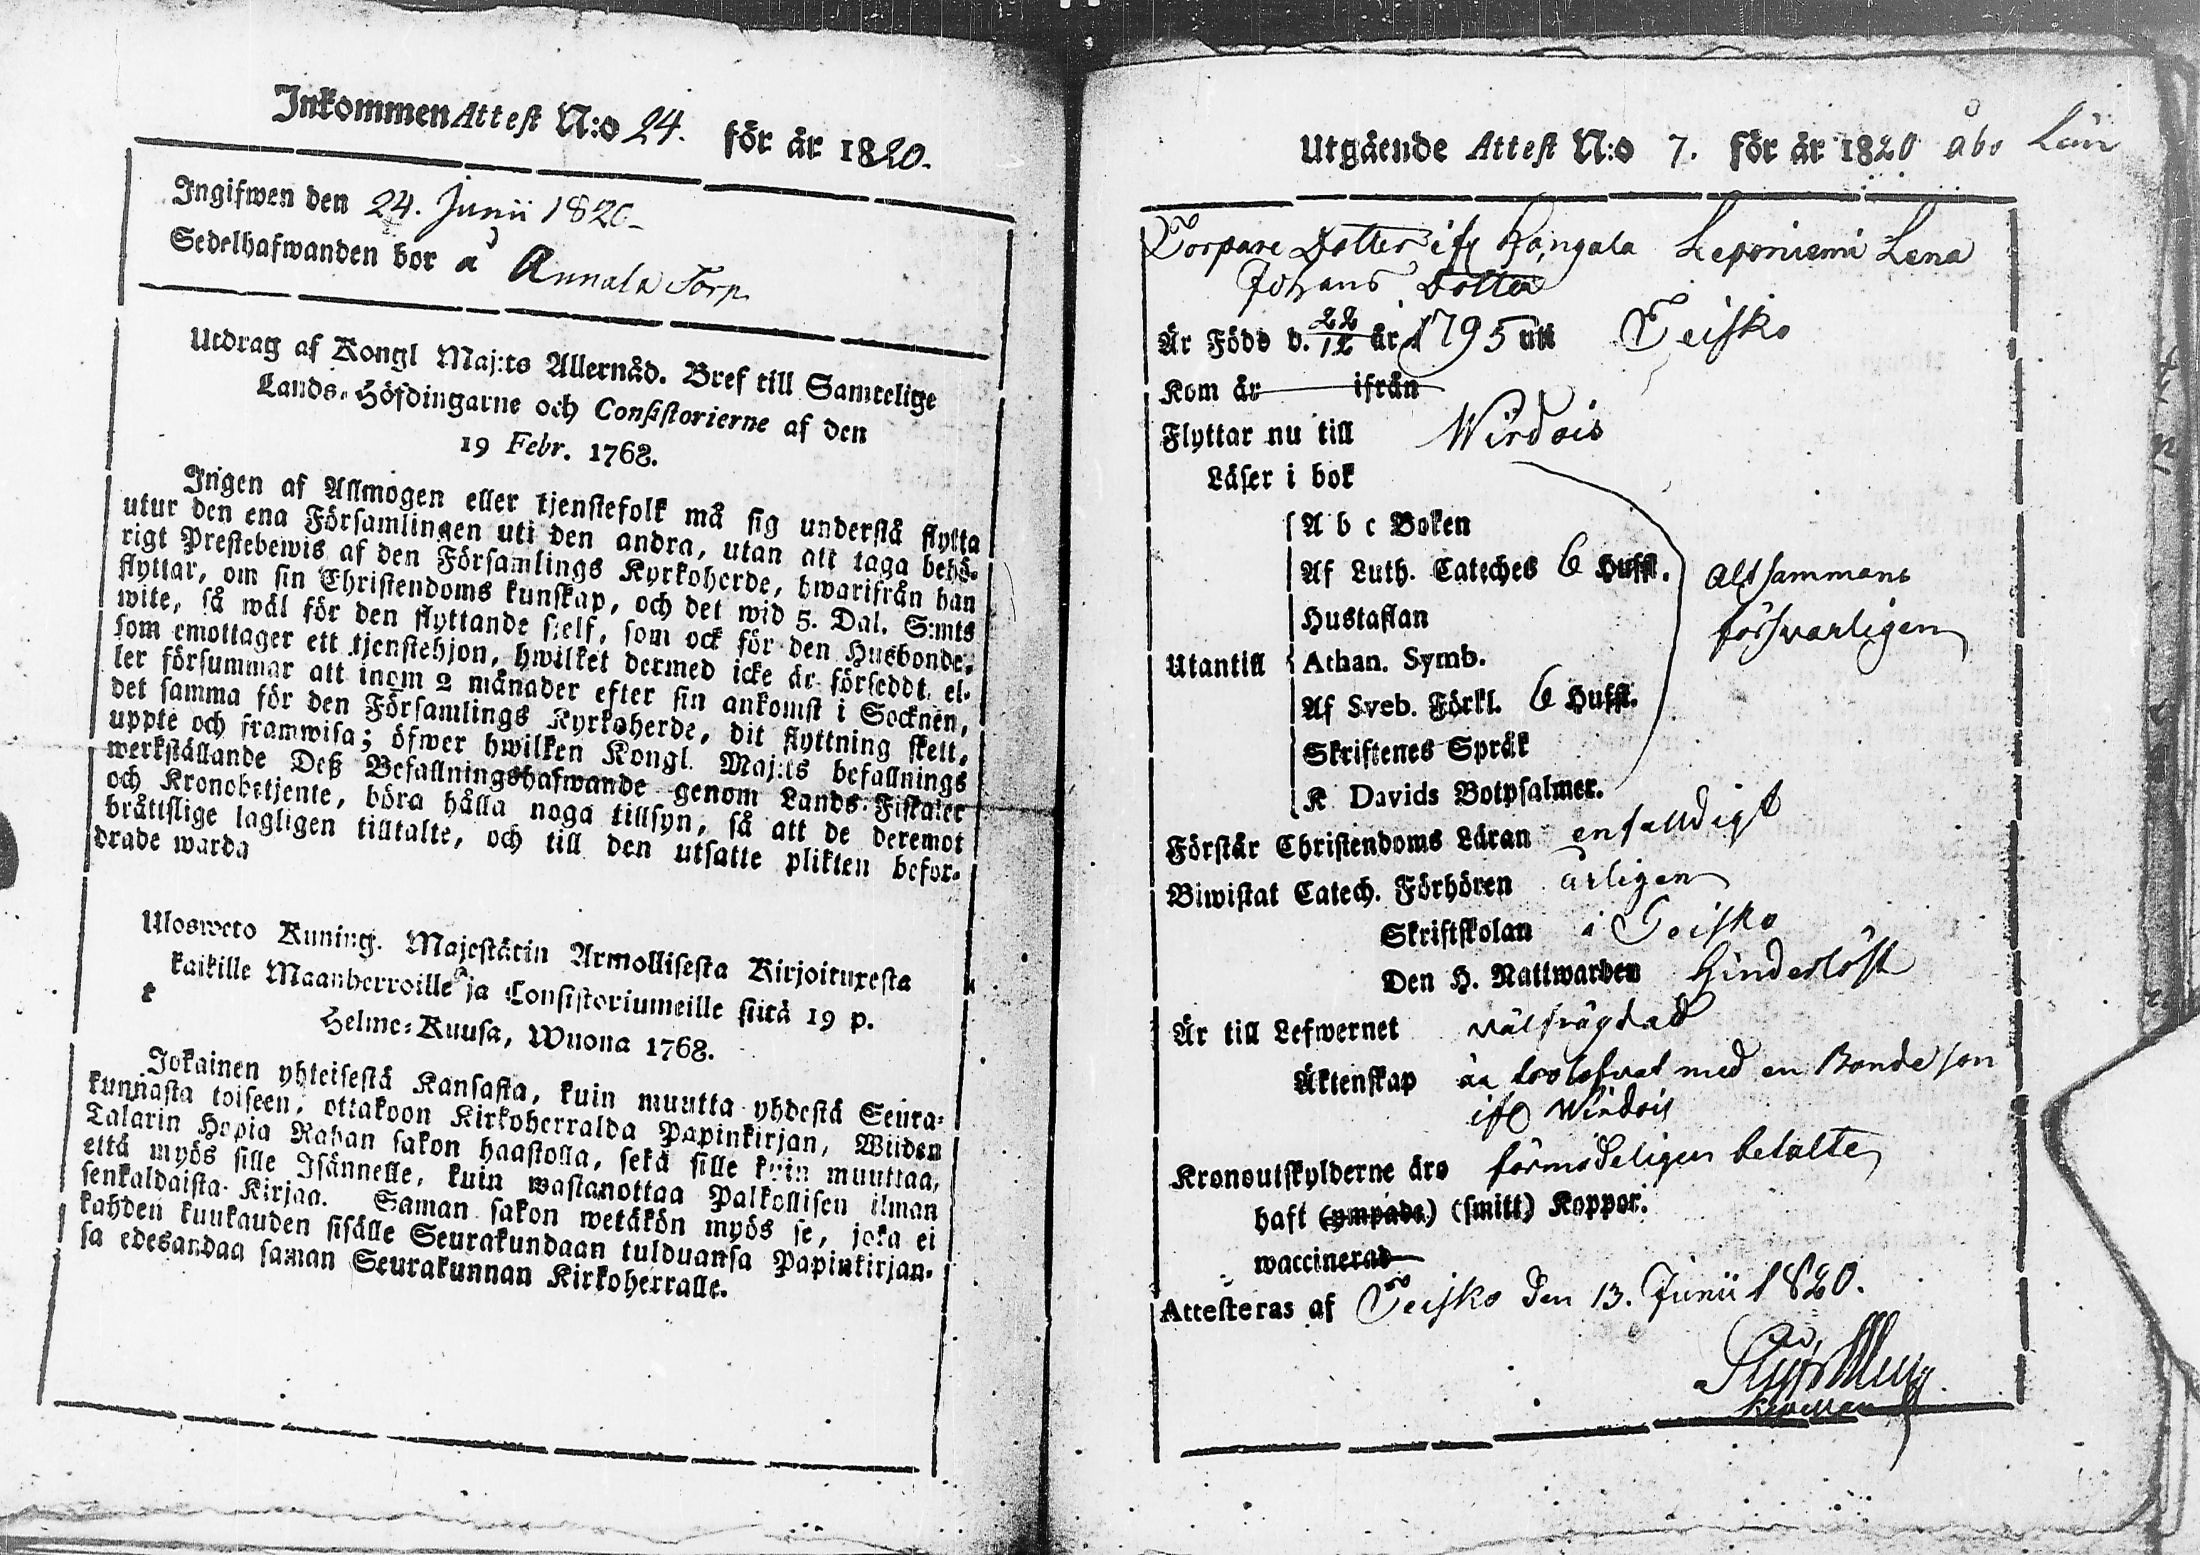 Inkommen Attest N:o 24. för år 1820.
Ingifwen den 24. Junii 1820
Sedelhafwanden bor å Annala Torp
Utdrag af Kongl Maj:ts Allernåd. Bref till Samtelige
Lands-Höfdingarne och Consistorierne af den
19 Febr. 1768.
Ingen af Allmogen eller tjenstefolk må sig understå flytta
utur den ena Församlingen uti den andra, utan att taga behö-
rigt Prestebewis af den Församlings Kyrkoherde, hwarifrån han
flyttar, om sin Christendoms kunskap, och det wid 5. Dal. S:mts
wite, så wäl för den flyttande sielf, som ock för den Husbonde,
som emottager ett tjenstehjon, hwilket dermed icke är förseddt, el-
ler försummar att inom 2 månader efter sin ankomst i Socknen,
det samma för den Församlings Kyrkoherde, dit flyttning skett,
uppte och framwisa; öfwer hwilken Kongl. Maj:ts befallnings
werkställande Deß Befallningshafwande genom Lands-Fiskaler
och Kronobetjente, böra hålla noga tillsyn, så att de deremot
bråttslige lagligen tilltalte, och till den utsatte plikten befor-
drade warda
Ulosweto Kuning. Majestätin Armollisesta Kirjoituxesta
kaikille Maanherroille ja Consistoriumeille siitä 19 p.
Helme-Kuusa, Wuona 1768.
Jokainen yhteisestä Kansasta, kuin muutta yhdestä Seura-
kunnasta toiseen, ottakoon Kirkoherralda Papinkirjan, Wiiden
Talarin Hopia Rahan sakon haastolla, sekä sille kuin muuttaa,
että myös sille Isännelle, kuin wastanottaa Palkollisen ilman
senkaldaista Kirjaa. Saman sakon wetäkön myös se, joka ei
kahden kuukauden sisälle Seurakundaan tulduansa Papinkirjan-
sa edesandaa saman Seurakunnan Kirkoherralle.
Utgående Attest N:o 7. för år 1820 Åbo Län
Torpare Dotter ifr Kangala Leponiemi Lena
Johans Dotter
Är Född d. 22/12 år 1795 uti Teisko
Kom år ifrån
Flyttar nu till Wirdois
Läser i bok
A b c Boken
Af Luth. Cateches 6 Hufst. altsammans
Hustaflan försvarligen
Utantill Athan. Symb.
Af Sveb. Förkl. 6 Hufst.
Skriftenes Språk
K Davids Botpsalmer.
Förstår Christendoms Läran enfalldigt
Biwistat Catech. Förhören årligen
Skriftskolan i Teisko
Den H. Nattwarden hinderlöst
Är till Lefwernet välfrägdad
Äktenskap är trolofvat med en Bonde son
ifr Wirdois
Kronoutskylderne äro förmodeligen betalte
haft (ympade) (smitt) Koppor.
waccinerad
Attesteras af Teisko den 13. Junii 1820.